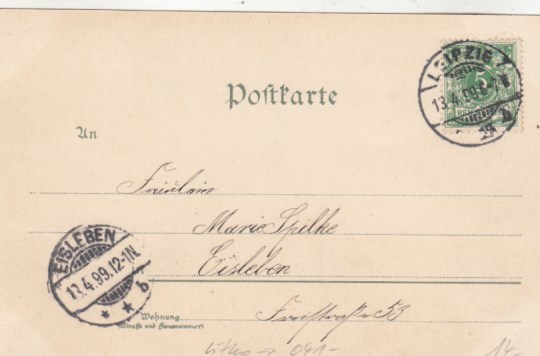 LEIPZIG
5
13.4.99.6-7N
Postkarte
An
Fräulein
Marie Spilke
Eisleben
EISLEBEN
13.4.99.12-1N
* * b
Wohnung
(Straße und Hausnummer)
Freistraße 53
Litho - 041-
14.-